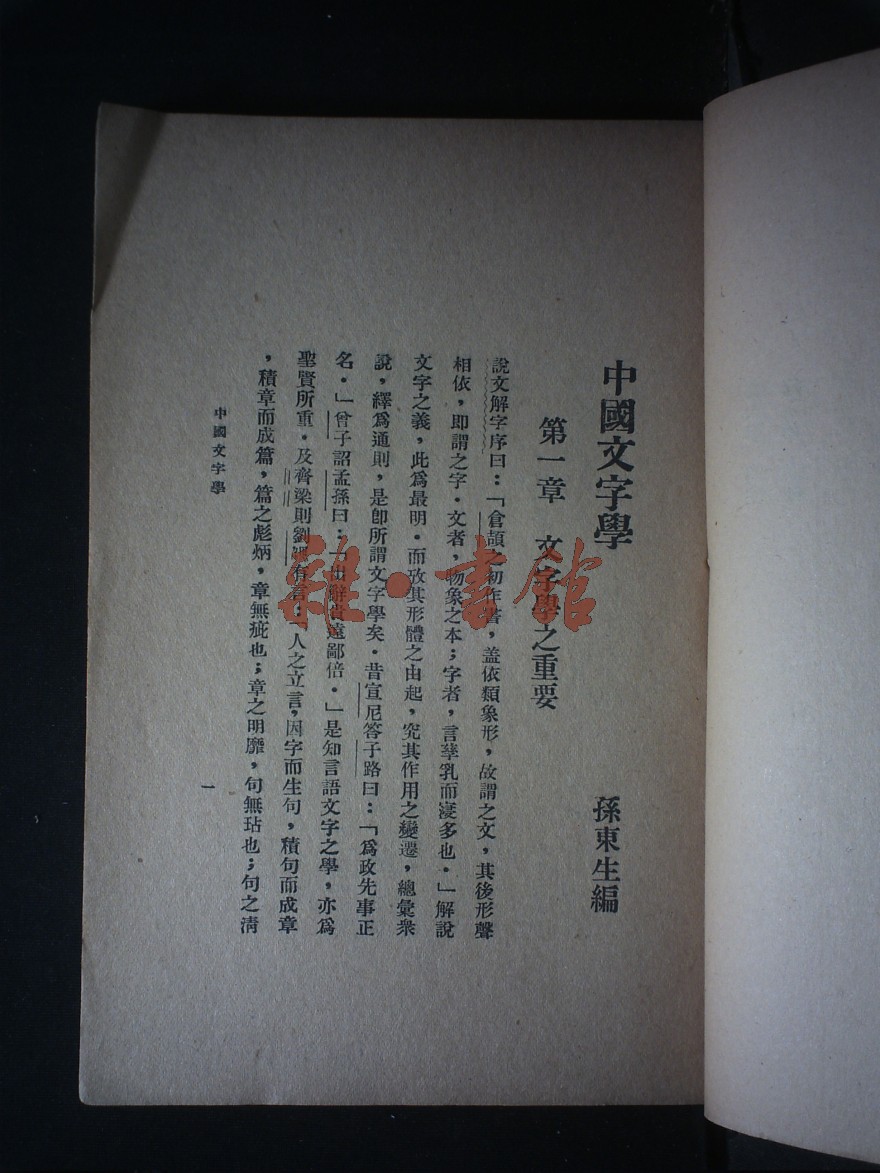 中國文字學
孫東生編
第一章 文字學之重要
說文解字序曰：「倉頡之初作書，蓋依類象形，故謂之文，其後形聲
相依，即謂之字．文者，物象之本；字者，言孳乳而寖多也．」解說
文字之義，此爲最明．而攷其形體之由起，究其作用之變遷，總彙衆
說，繹爲通則，是卽所謂文字學矣．昔宣尼答子路曰：「爲政先事正
名．」曾子詔孟孫曰：「出辭貴遠鄙倍．」是知言語文字之學，亦爲
聖賢所重．及齊梁則劉勰有言：「人之立言，因字而生句，積句而成章
，積章而成篇，篇之彪炳，章無疵也；章之明靡，句無玷也；句之淸
中國文字學
一
雜·書館